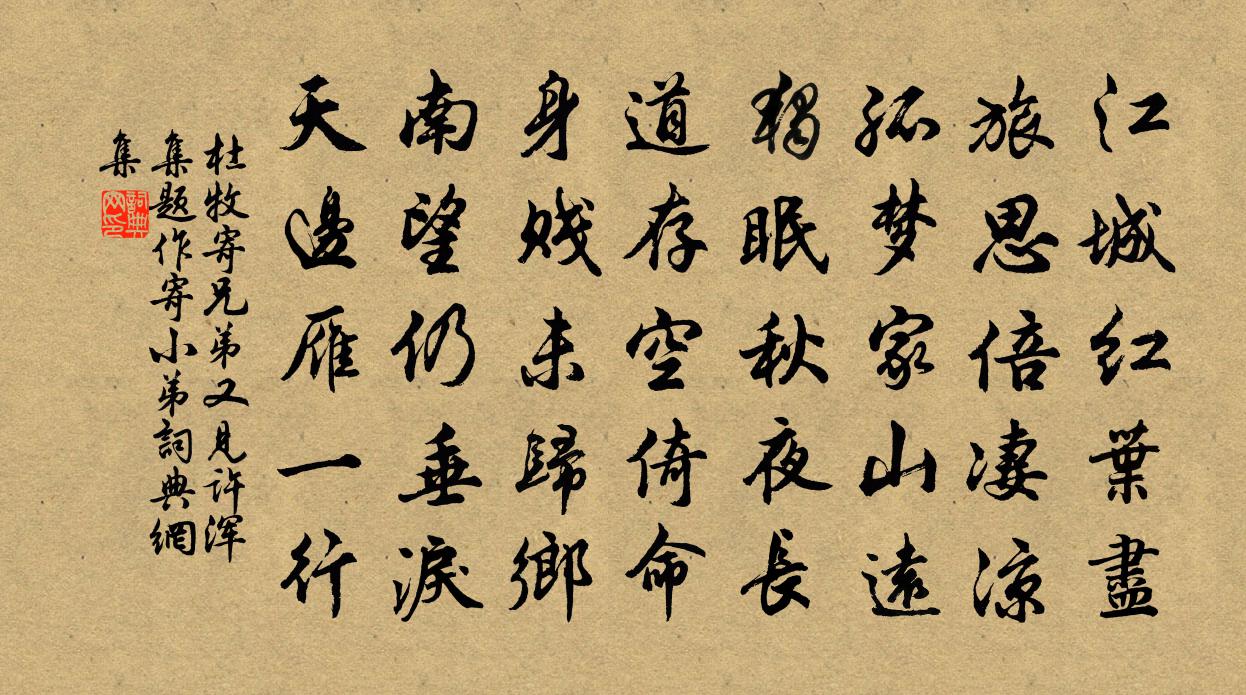 江城红葉盡
旅思倍凄涼
孤梦家山遠
獨眠秋夜長
道存空倚命
身贱未歸鄉
南望仍垂淚
天邊雁一行
杜牧寄兄弟又見许浑
集題作寄小弟詞典網
集
詞典网印